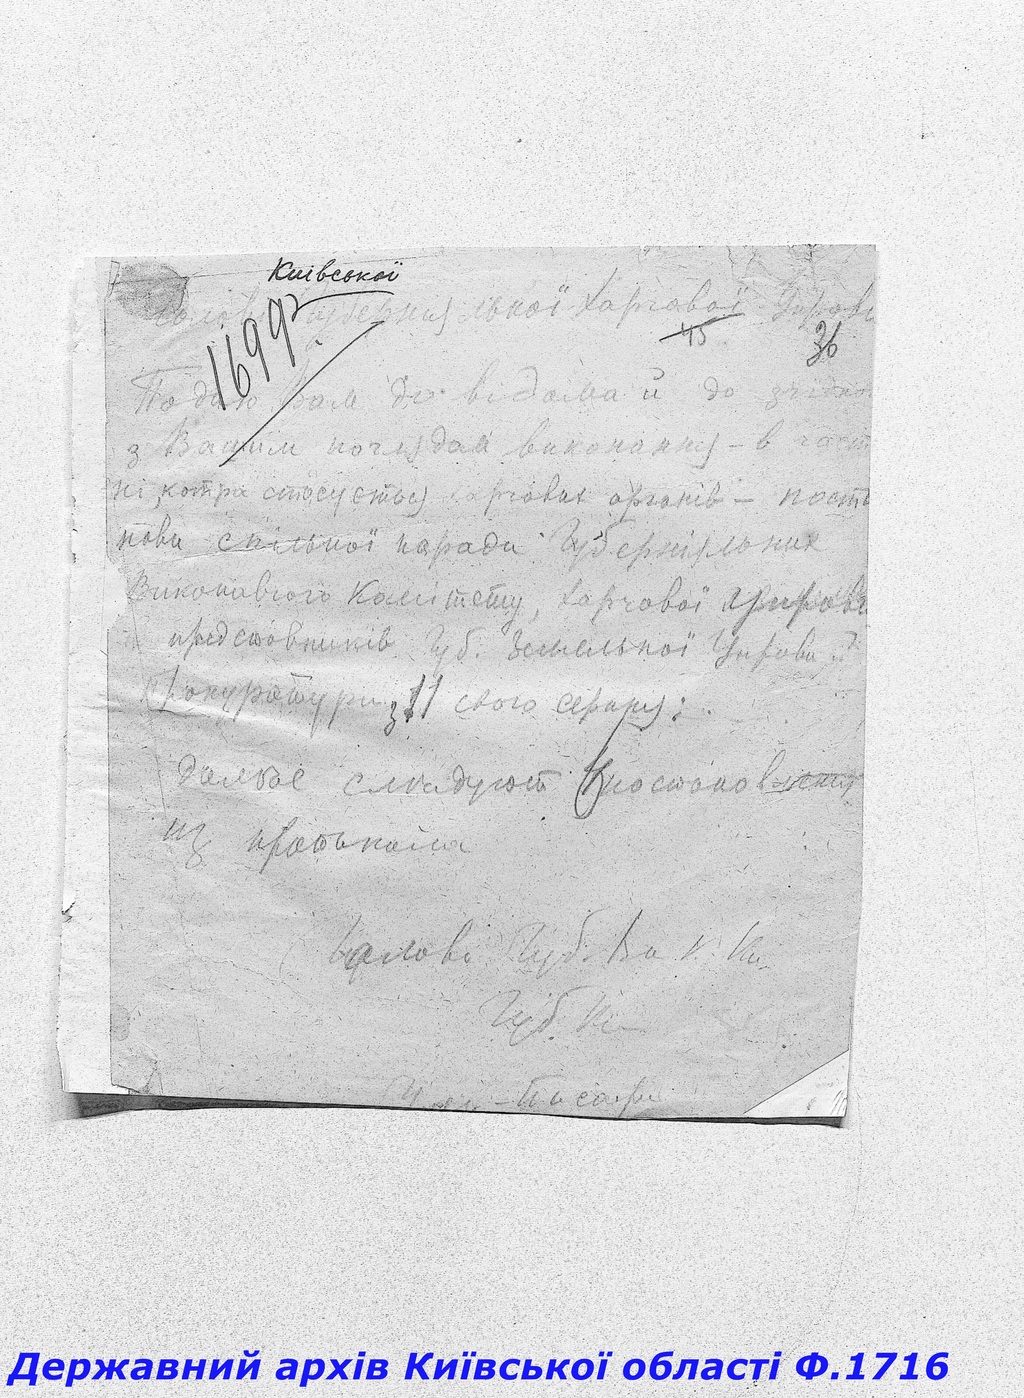 Київської
Голові Губерніяльної Харчової Управи
1699
45
36
Подаю Вам до відома й до
з Вашим поглядом виконання – в част
ні котра стосується харчових органів – поста
нови спільної наради Губерніяльних
Виконавчого Комітету, Харчової Управи
представників Губ. Земельної Управи й
Прокуратури з 11 сього серпня:
дальше следуют постановления
из протокола
Голова Губ.
Губ.
Писарь
Державний архів Київської області Ф.1716